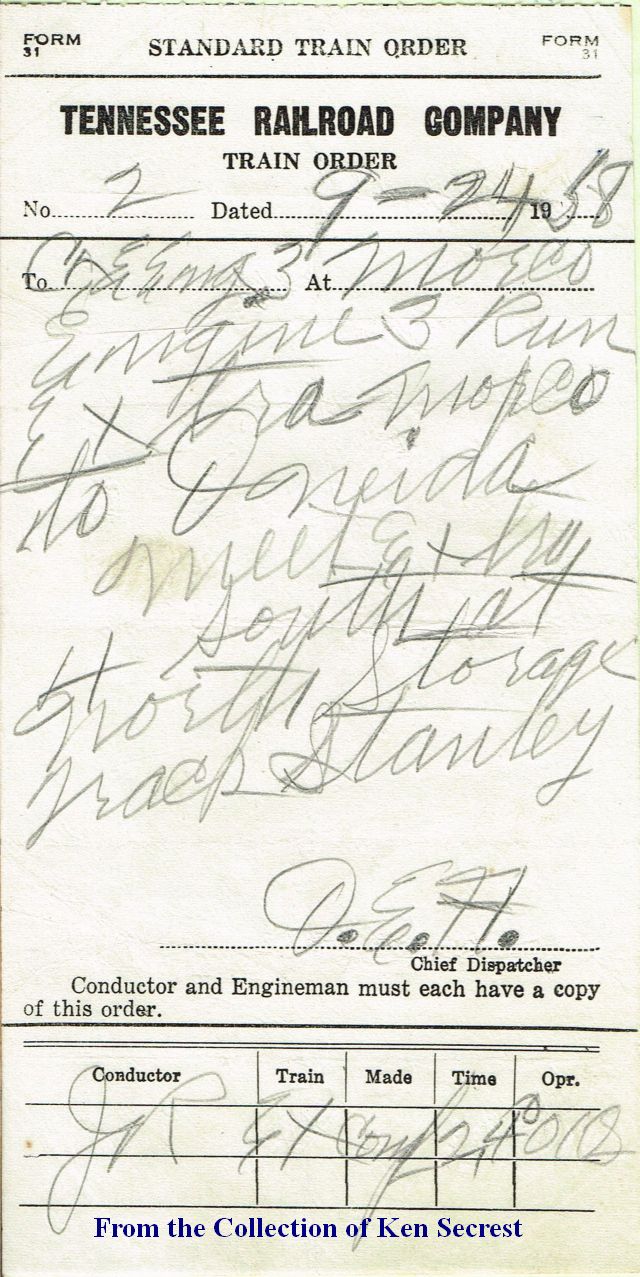 FORM 31 STANDARD TRAIN ORDER FORM 31
TENNESSEE RAILROAD COMPANY
TRAIN ORDER
No. 2 Dated 9-24 1958
To C&E Eng 3 At Morco
Engine 3 Run
Extra Morco
to Oneida
meet Extra
south at
North Storage
track Stanley
D.E.H.
Chief Dispatcher
Conductor and Engineman must each have a copy
of this order.
Conductor Train Made Time Opr.
JR EX Com
From the Collection of Ken Secrest